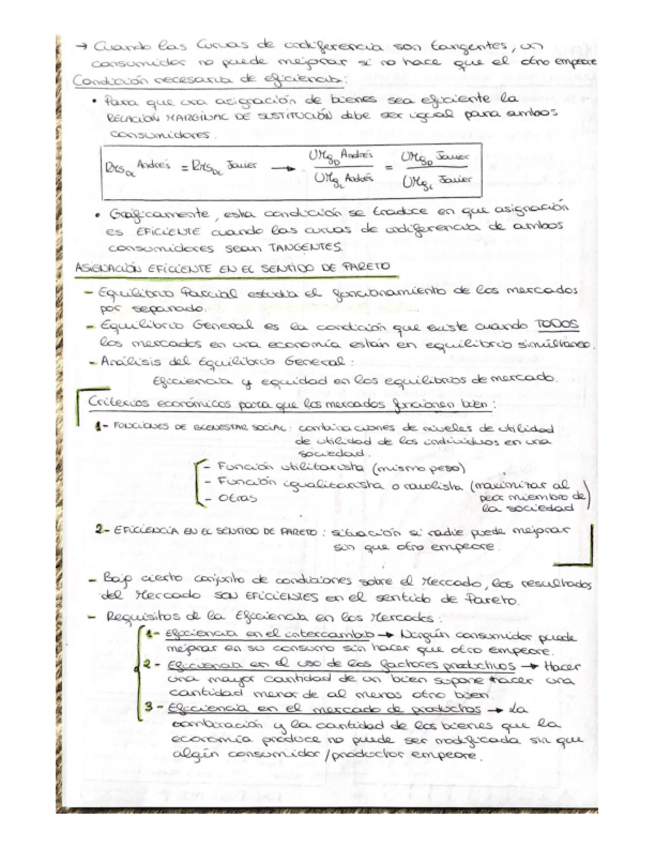 → Cuando las Curvas de indiferencia son tangentes, un
consumidor no puede mejorar si no hace que el otro empeore
Condición necesaria de eficiencia:
• Para que una asignación de bienes sea eficiente la
RELACIÓN MARGINAL DE SUSTITUCIÓN debe ser igual para ambos
consumidores.
RMS_DC Andrés = RMS_DC Javier → UMg_D Andrés / UMg_C Andrés = UMg_D Javier / UMg_C Javier
• Gráficamente, esta condición se traduce en que asignación
es EFICIENTE cuando las curvas de indiferencia de ambos
consumidores sean TANGENTES.
ASIGNACIÓN EFICIENTE EN EL SENTIDO DE PARETO
- Equilibrio Parcial estudia el funcionamiento de los mercados
por separado.
- Equilibrio General es la condición que existe cuando TODOS
los mercados en una economía están en equilibrio simultáneo.
- Análisis del Equilibrio General:
Eficiencia y equidad en los equilibrios de mercado.
Criterios económicos para que los mercados funcionen bien:
1- FUNCIONES DE BIENESTAR SOCIAL: combinaciones de niveles de utilidad
de utilidad de los individuos en una
sociedad.
- Función utilitarista (mismo peso)
- Función igualitarista o rawlista (maximizar al
peor miembro de
la sociedad)
- Otras
2- EFICIENCIA EN EL SENTIDO DE PARETO: situación si nadie puede mejorar
sin que otro empeore.
- Bajo cierto conjunto de condiciones sobre el Mercado, los resultados
del Mercado SON EFICIENTES en el sentido de Pareto.
- Requisitos de la Eficiencia en los Mercados:
1- Eficiencia en el intercambio → Ningún consumidor puede
mejorar en su consumo sin hacer que otro empeore.
2- Eficiencia en el uso de los factores productivos → Hacer
una mayor cantidad de un bien supone hacer una
cantidad menor de al menos otro bien.
3- Eficiencia en el mercado de productos → La
combinación y la cantidad de los bienes que la
economía produce no puede ser modificada sin que
algún consumidor/productor empeore.